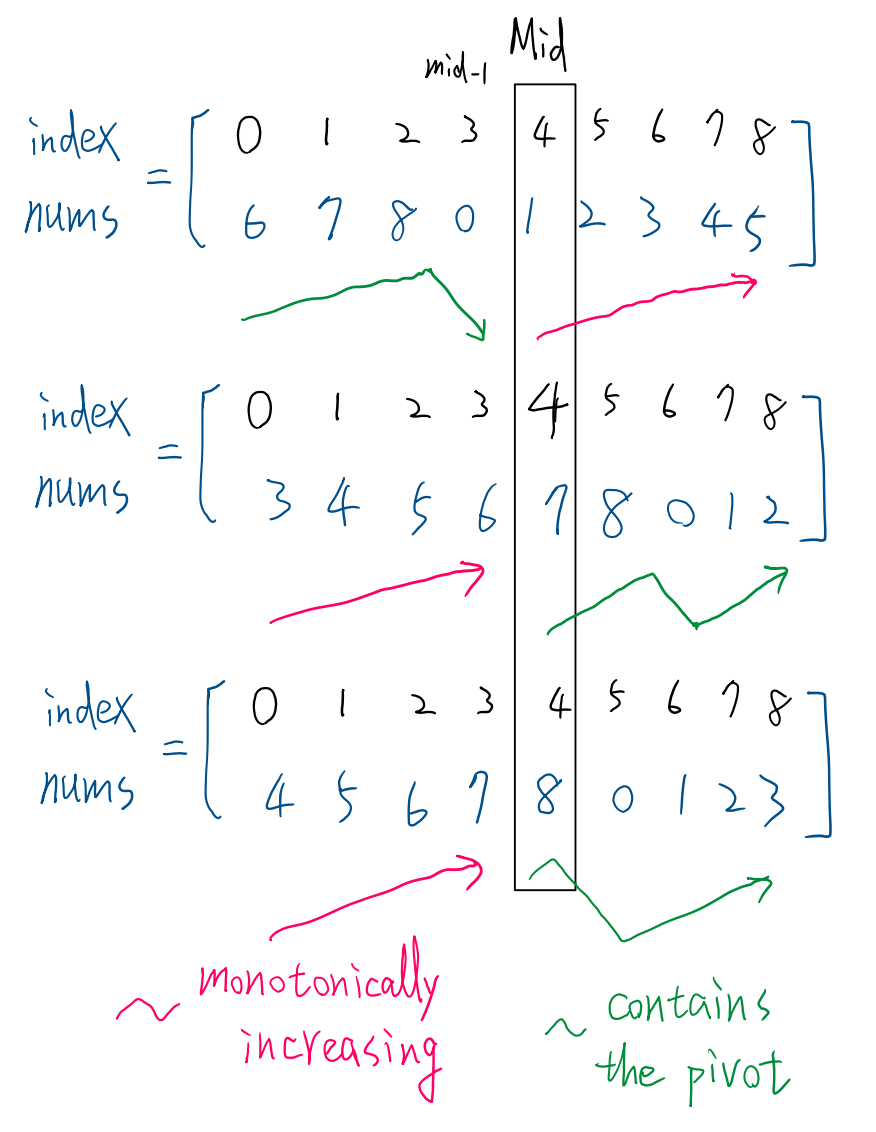 Mid
mid-1
index 0 1 2 3 4 5 6 7 8
=
nums 6 7 8 0 1 2 3 4 5
index 0 1 2 3 4 5 6 7 8
=
nums 3 4 5 6 7 8 0 1 2
index 0 1 2 3 4 5 6 7 8
=
nums 4 5 6 7 8 0 1 2 3
~ monotonically
increasing
~ contains
the pivot